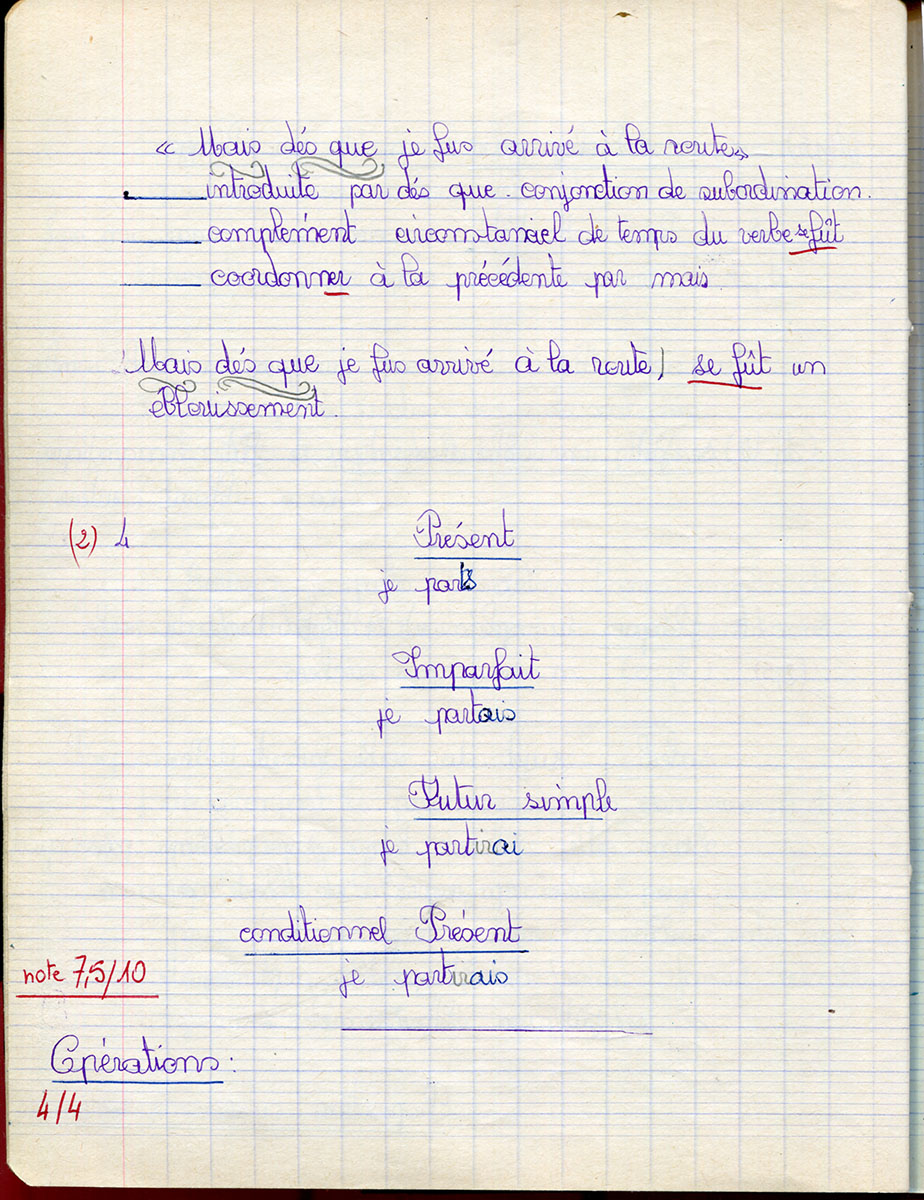 « Mais dés que je fus arrivé à la route»
introduite par dés que. conjonction de subordination.
complément circonstanciel de temps du verbe se fût
coordonner à la précédente par mais.
Mais dés que je fus arrivé à la route) se fût un
éblouissement.
(2) 4 Présent
je pars
Imparfait
je partais
Futur simple
je partirai
conditionnel Présent
note 7,5/10
je partirais
Opérations:
4/4